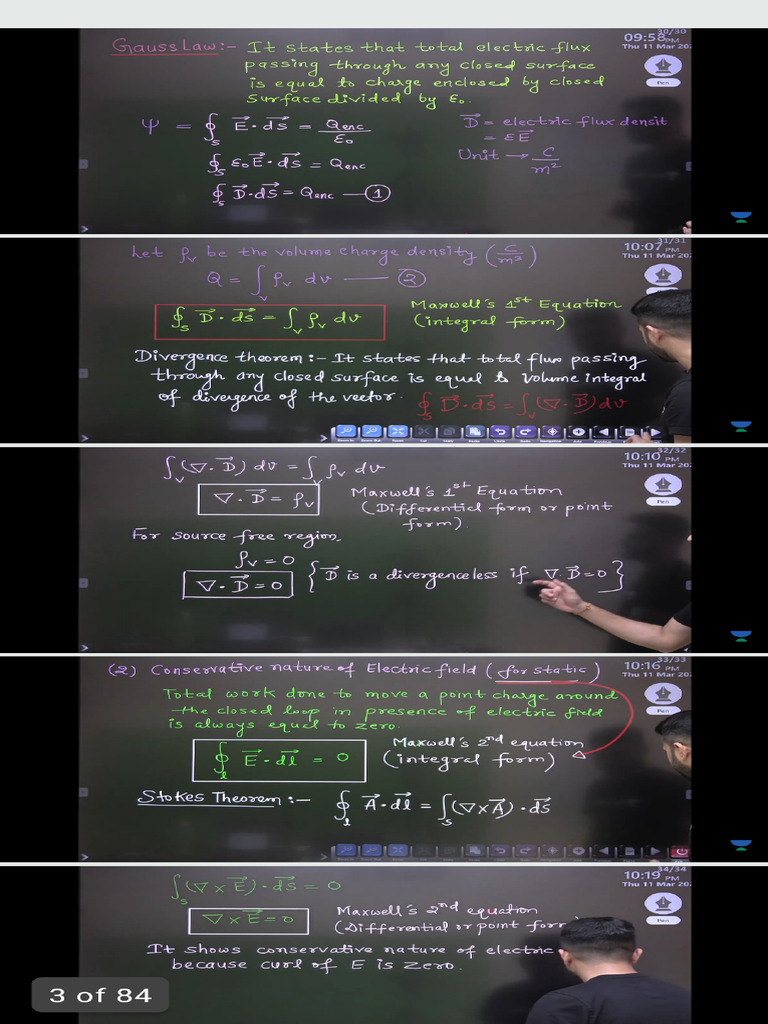 30/30
09:58 PM
Thu 11 Mar 202
Pen
Gauss Law:- It states that total electric flux
passing through any closed surface
is equal to charge enclosed by closed
surface divided by ε₀.
Ψ = ∮ₛ E⃗·ds⃗ = Qenc/ε₀
∮ₛ ε₀E⃗·ds⃗ = Qenc
∮ₛ D⃗·ds⃗ = Qenc — ①
D⃗ = electric flux densit
= εE⃗
Unit → C/m²
31/31
10:07 PM
Thu 11 Mar 202
Let ρᵥ be the volume charge density (C/m³)
Q = ∫ᵥ ρᵥ dv — ②
∮ₛ D⃗·ds⃗ = ∫ᵥ ρᵥ dv
Maxwell's 1st Equation
(integral form)
Divergence theorem:- It states that total flux passing
through any closed surface is equal to volume integral
of divergence of the vector.
∮ₛ D⃗·ds⃗ = ∫ᵥ(∇·D⃗)dv
32/32
10:10 PM
Thu 11 Mar 202
Pen
∫ᵥ(∇·D⃗) dv = ∫ᵥ ρᵥ dv
∇·D⃗ = ρᵥ
Maxwell's 1st Equation
(Differential form or point
form).
For source free region,
ρᵥ = 0
∇·D⃗ = 0
{ D⃗ is a divergenceless if ∇·D⃗ = 0 }
33/33
10:16 PM
Thu 11 Mar 202
Pen
(2) Conservative nature of Electric field (for static)
Total work done to move a point charge around
the closed loop in presence of electric field
is always equal to zero.
∮ₗ E⃗·dl⃗ = 0
Maxwell's 2nd equation
(integral form)
Stokes Theorem:- ∮ₗ A⃗·dl⃗ = ∫ₛ(∇×A⃗)·ds⃗
34/34
10:19 PM
Thu 11 Mar 202
Pen
∫ₛ(∇×E⃗)·ds⃗ = 0
∇×E⃗ = 0
Maxwell's 2nd equation
(Differential or point form
It shows conservative nature of electric
because curl of E is zero.
3 of 84